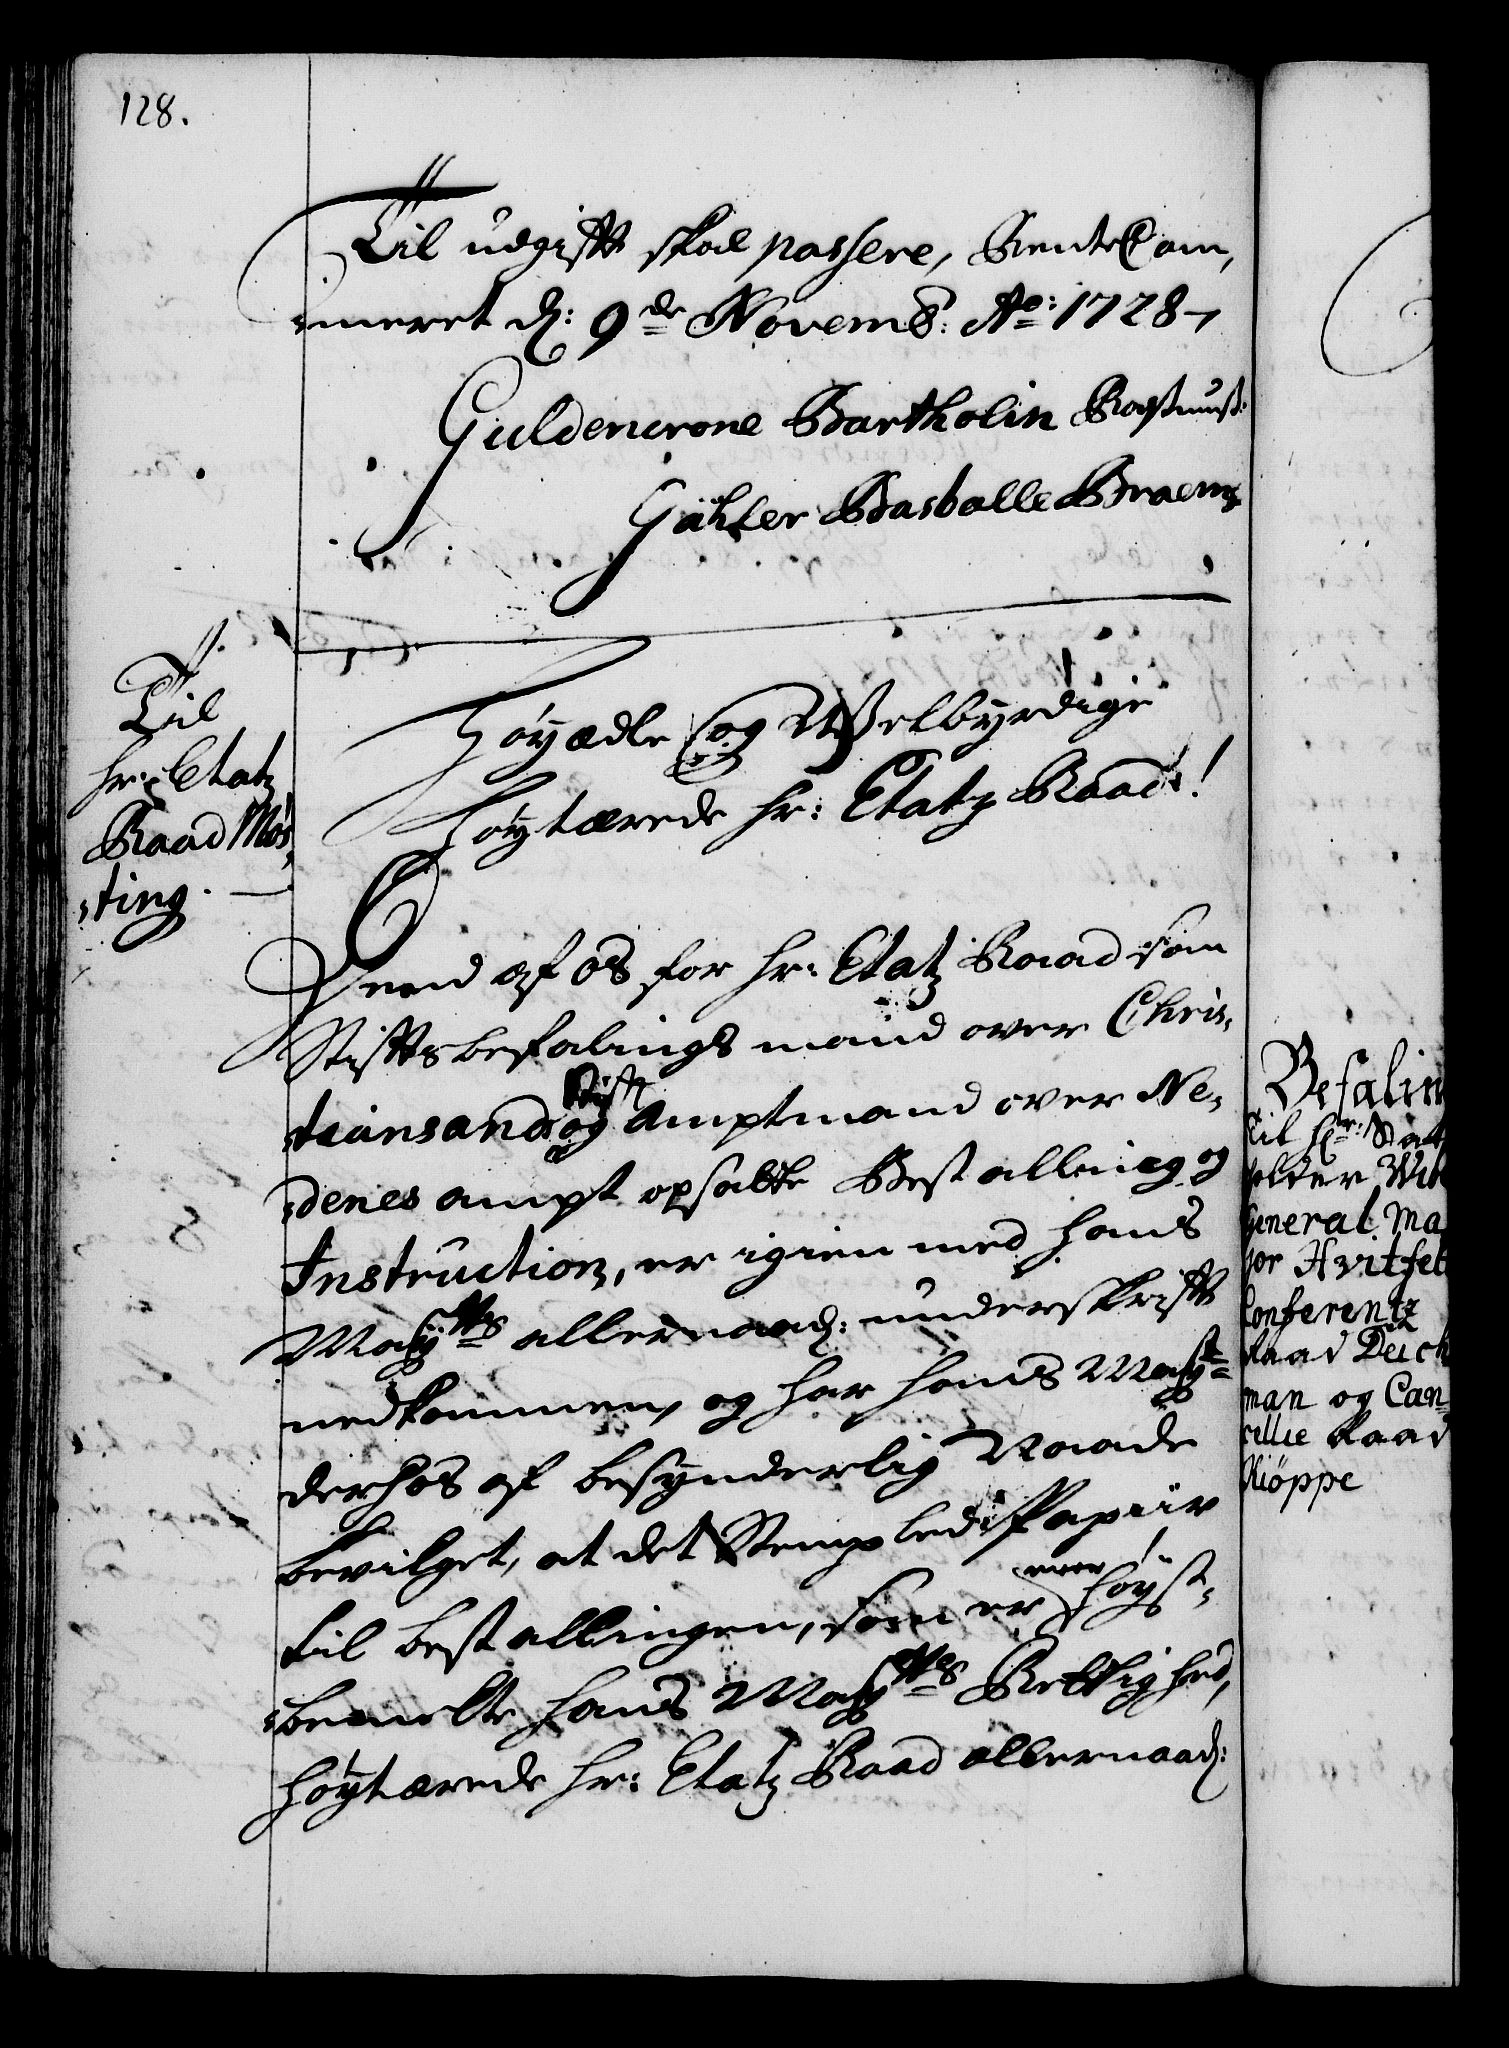 128.
Til udgifft skal passere, RenteCam,
meret d: 9de Novemb: Ao: 1728,
Guldencrone Bartholin Rostmust:
Gähler Basballe Braem
Til
hr: Etatz
Raad Mös,
ting.
Höyædle og Welbyrdige
Höytærede hr: Etatz Raad!
Dend af os for hr: Etatz Raad som
Stifftsbefalings mand over Chris,
tiansand og Stifft Amptmand over Ne,
denes ampt opsatte Bestalling og
Instruction, er igien med hans
Mayttes allernaad: underskrifft
nedkommen, og har hans Mayt
derhos af besynderlig Naade
bevilget, at det Stempled Papiir
til bestallingen, som er meer höyst,
bemelte hans Mayttes Rettighed,
höytærede hr: Etatz Raad allernaad:
Befalin
til hr: Stat
holder Wib
General Ma
jor Hvitfel
Conferentz
Raad Deich
man og Can
cellie Raad
Kiöppe